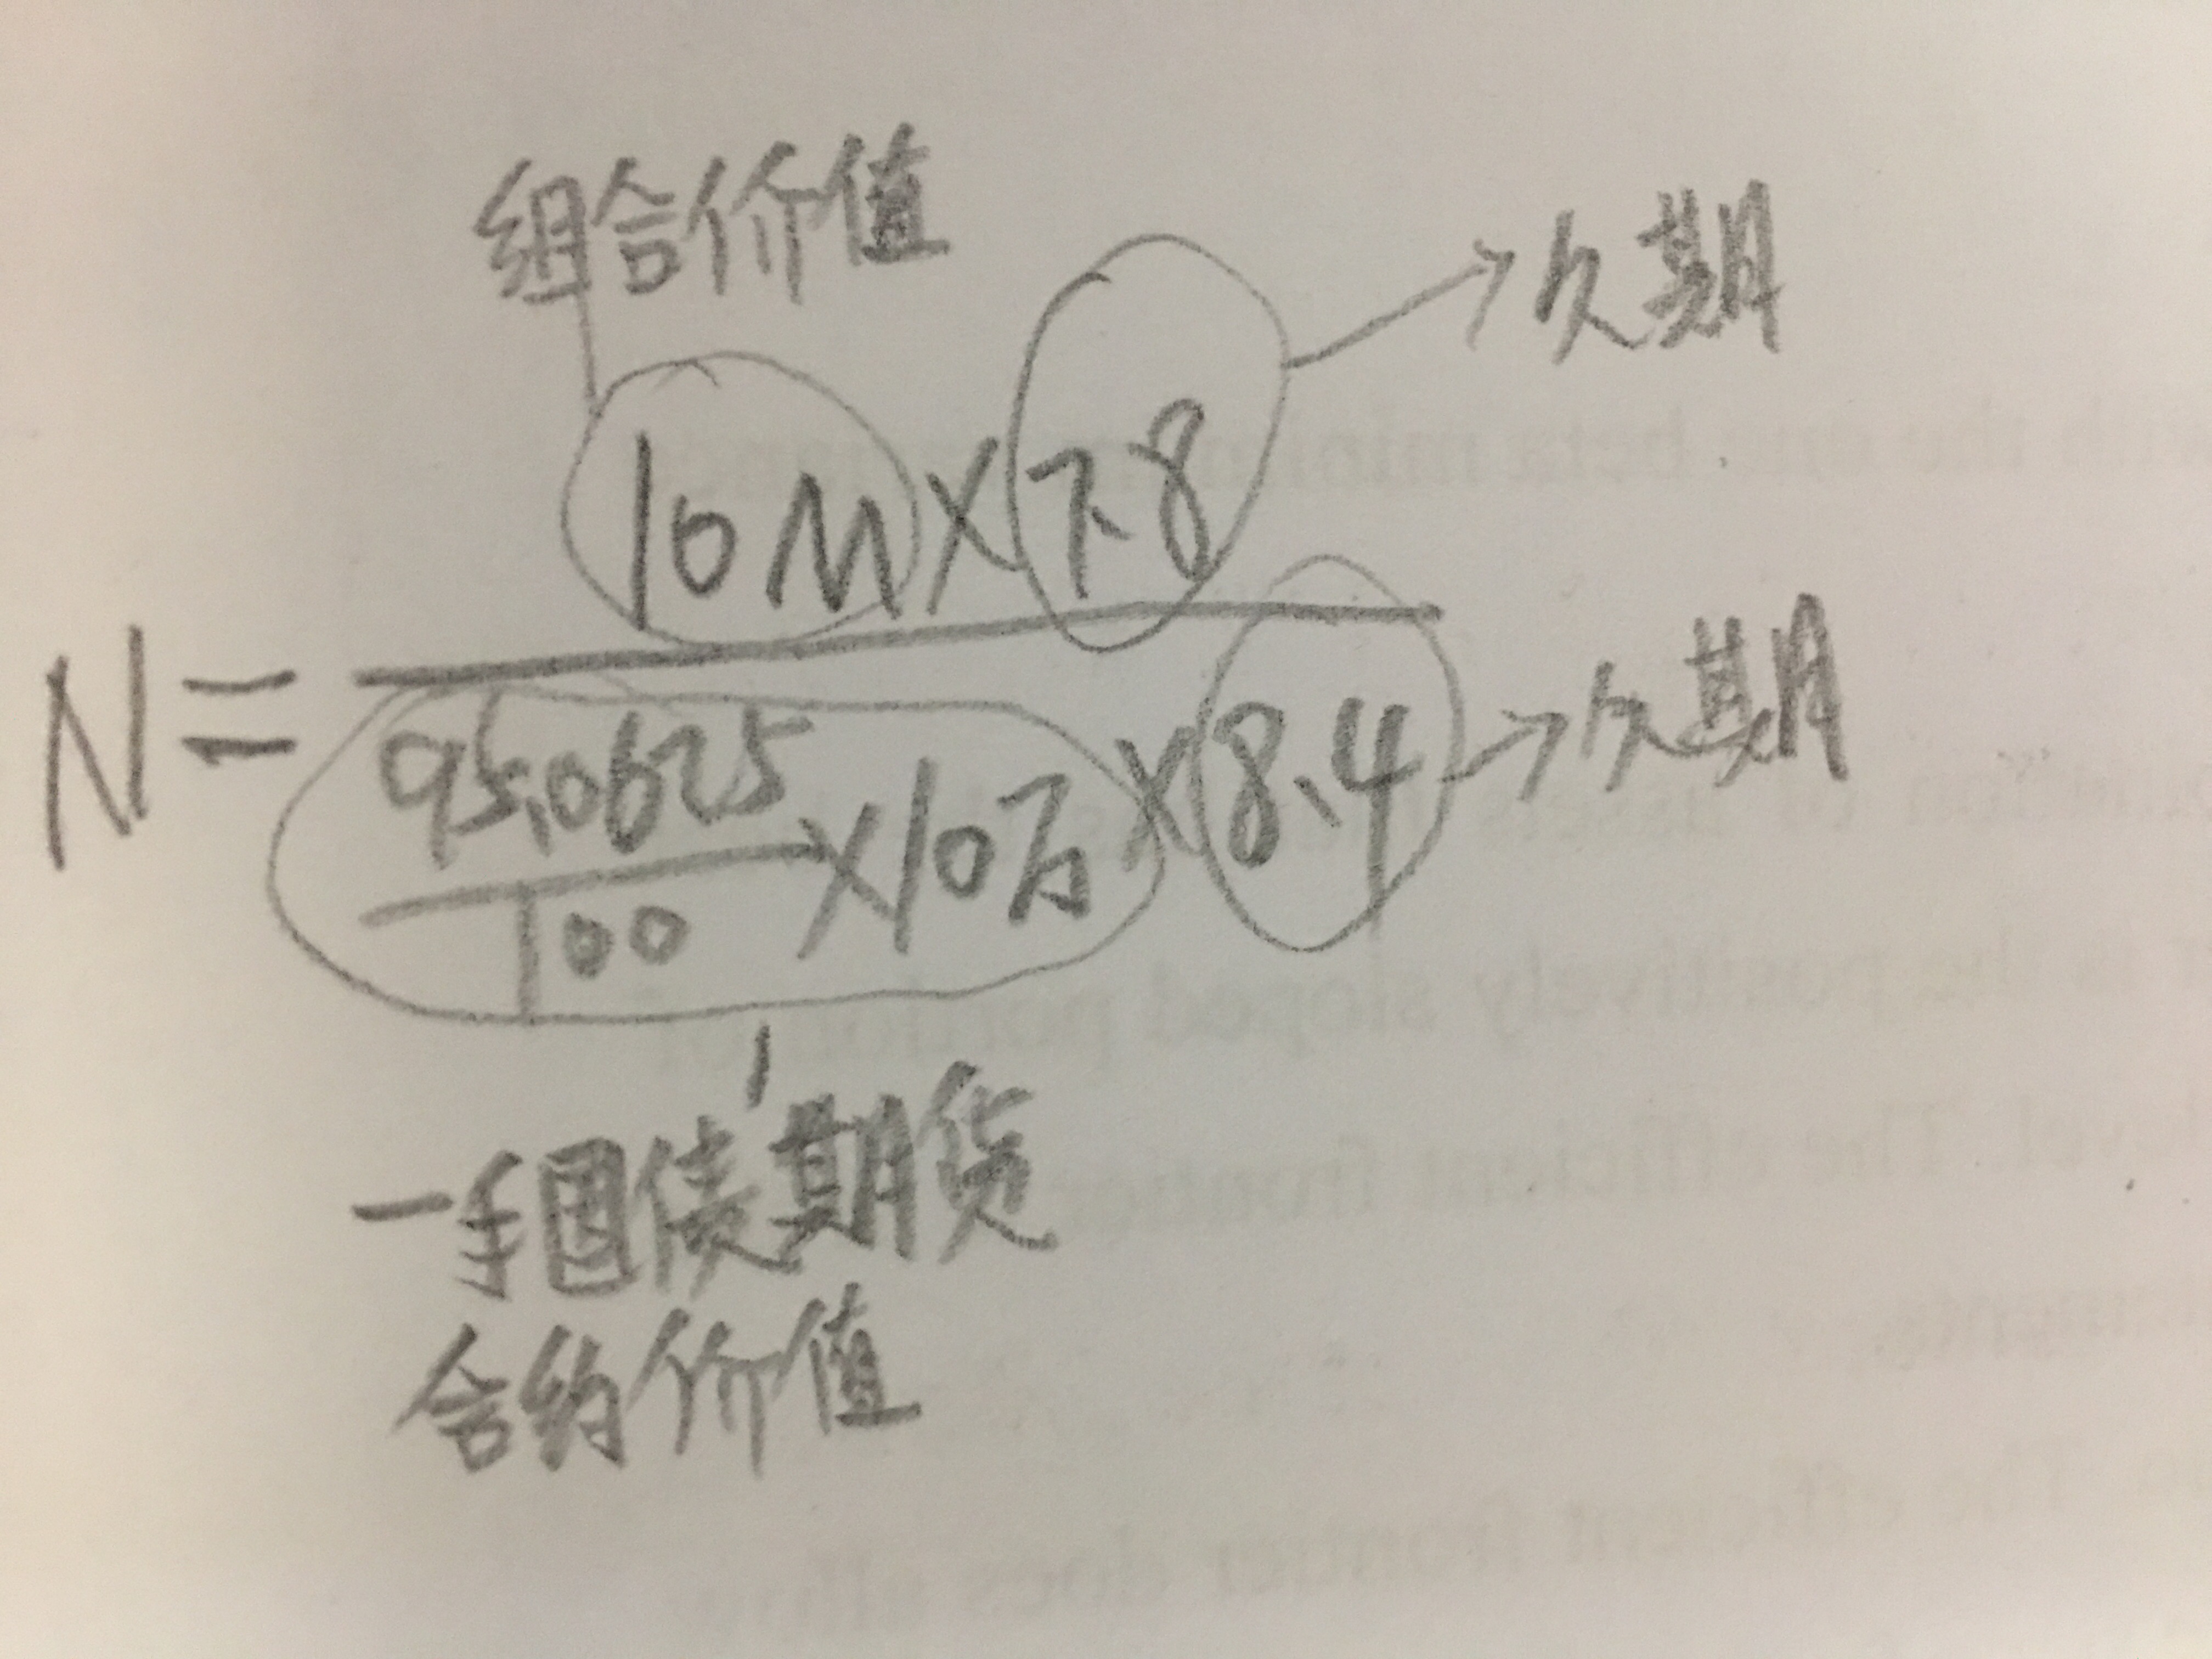 组合价值
久期
10M×7.8
N=
95.0625
100
×10万
×8.4
久期
一手国债期货
合约价值